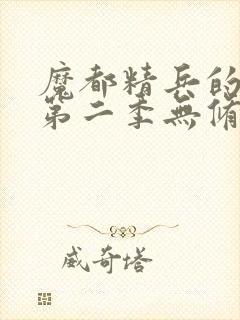 魔都精兵的
第二季無脩
威奇塔